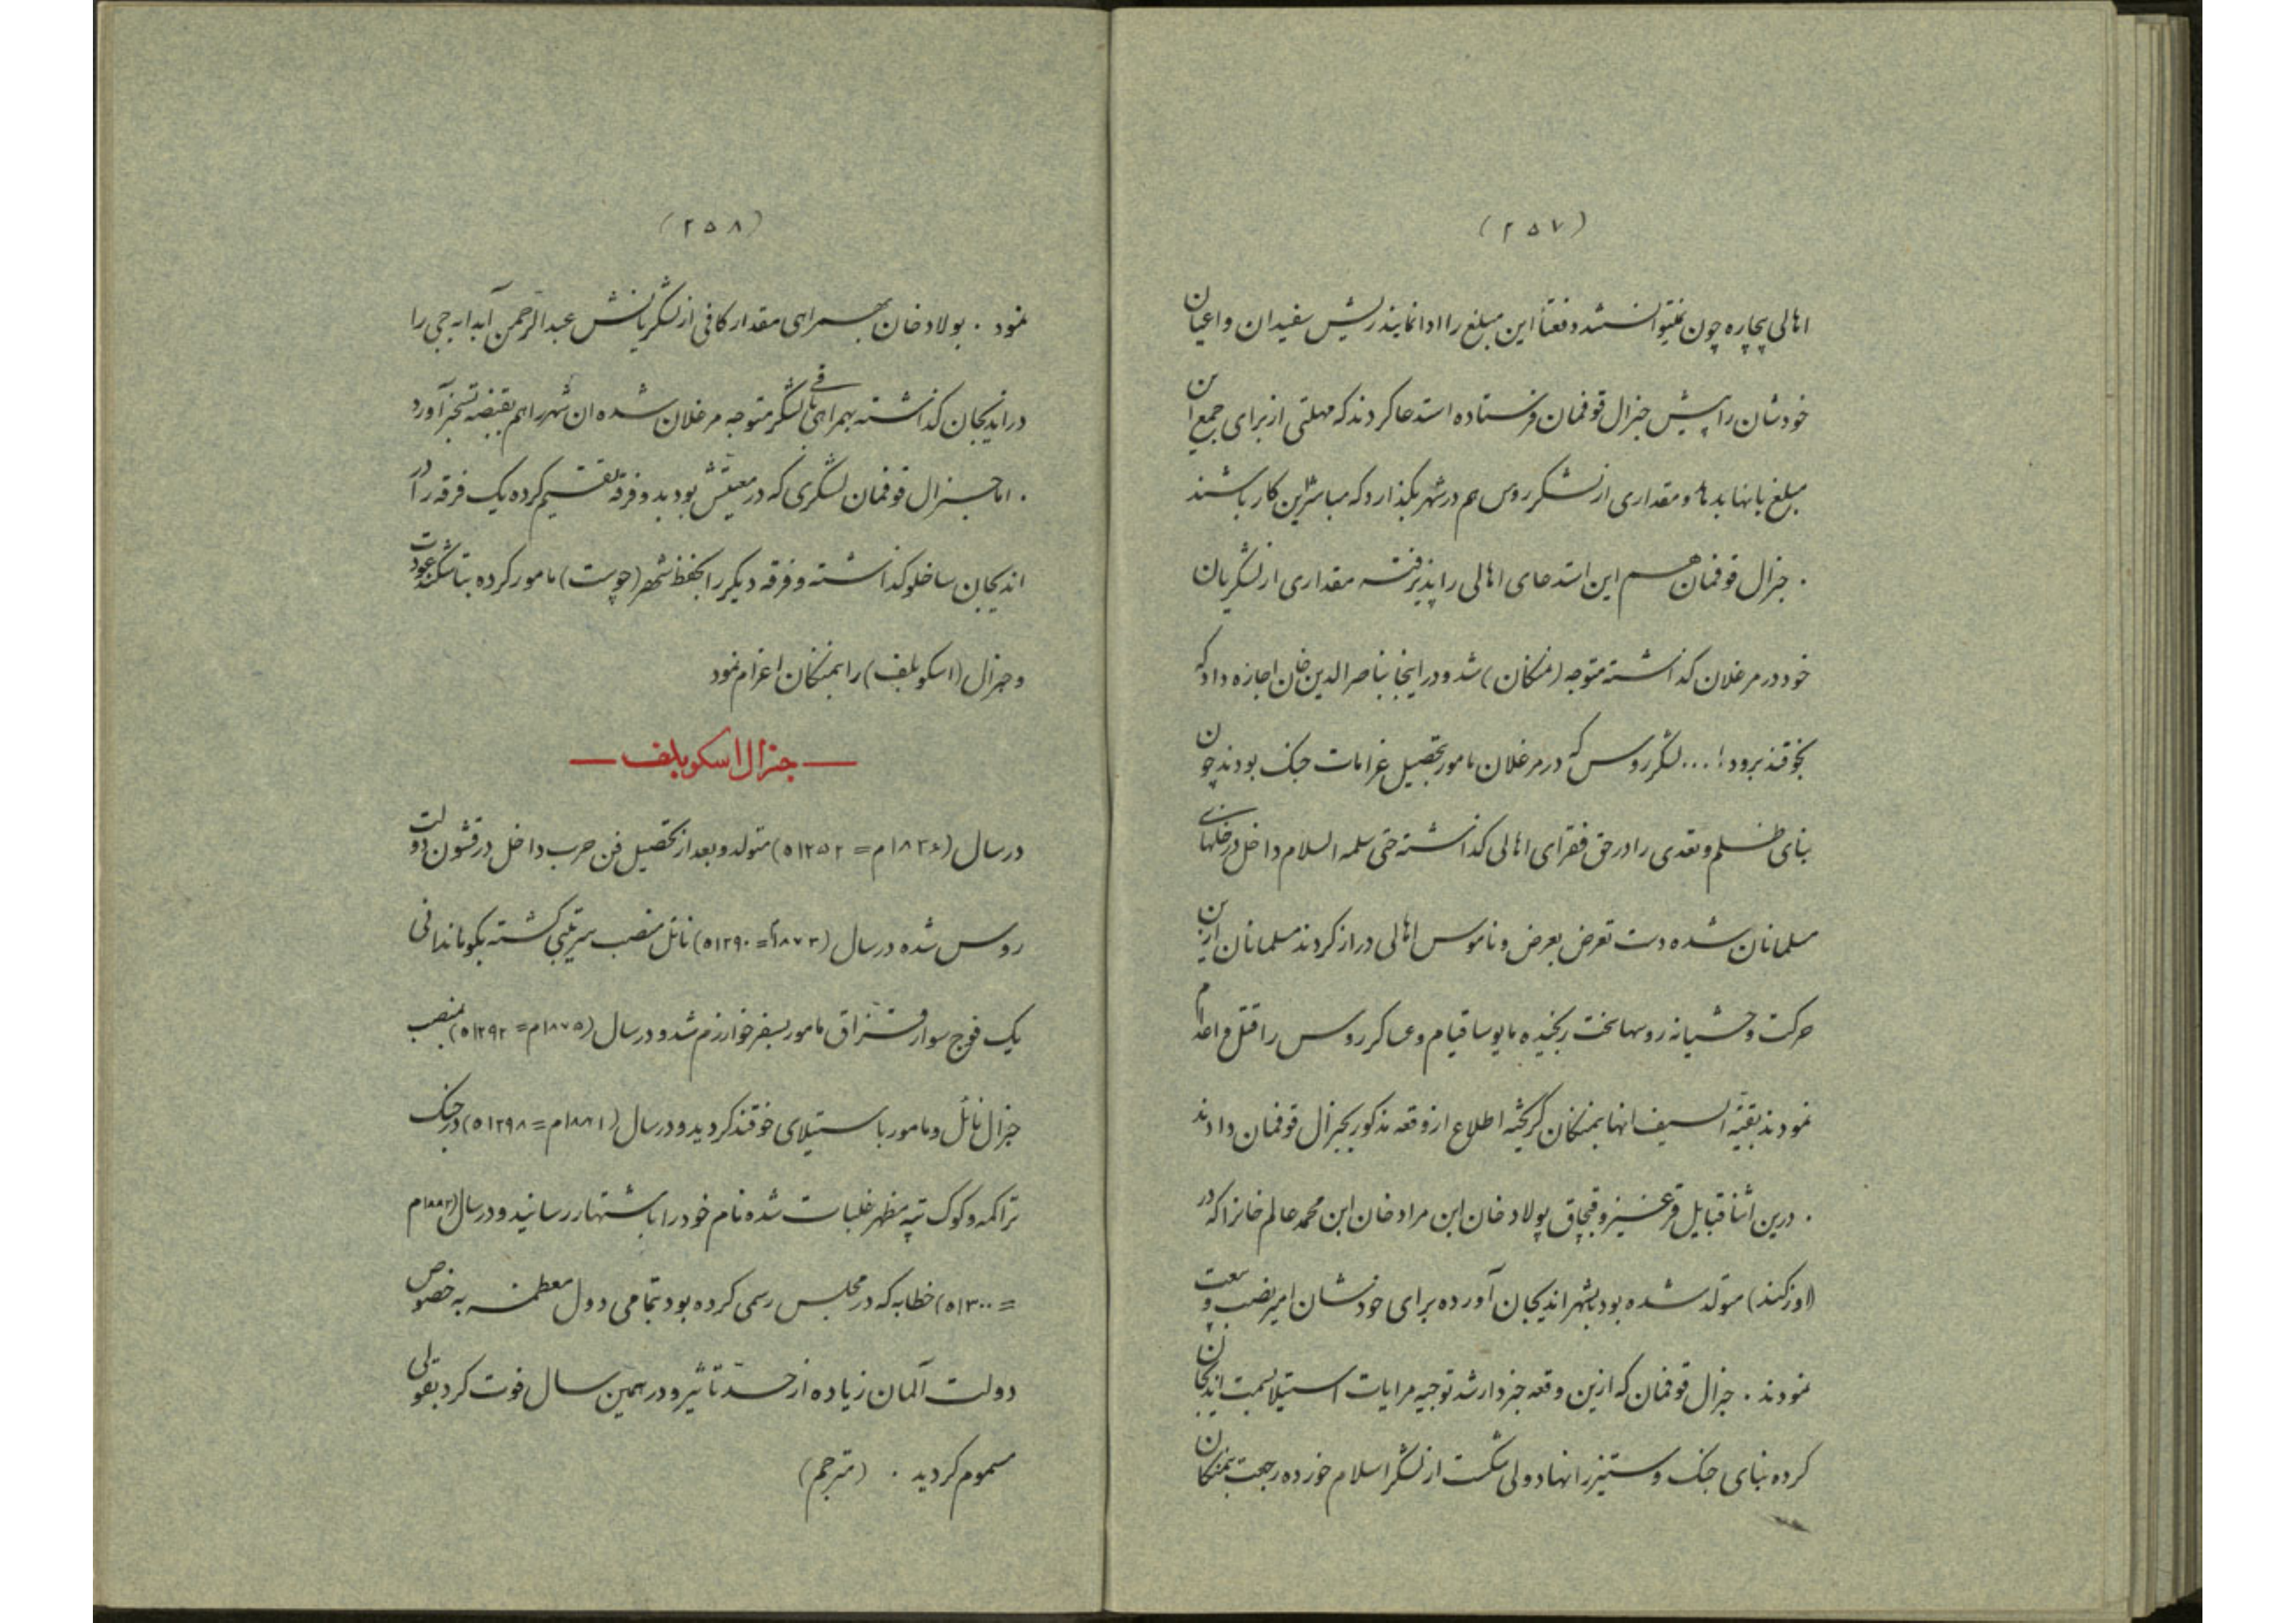 (۲۵۷)
اهالی بیچاره چون نمیتوانستند دفعتاً این مبلغ را ادا نمایند ریش سفیدان و اعیان
خودشان را پیش جنرال قوفمان فرستاده استدعا کردند که مهلتی از برای جمع این
مبلغ بانها بدهد و مقداری از لشکر روس هم در شهر بگذارد که مباشر این کار باشند
. جنرال قوفمان هم این استدعای اهالی را پذیرفته مقداری از لشکریان
خود در مرغلان گذاشته متوجه (منکان) شد و در اینجا بناصرالدین خان اجازه داد که
بخوقند برود! ... لشکر روس که در مرغلان مامور تحصیل غرامات جنک بودند چون
بنای ظلم و تعدی را در حق فقرای اهالی گذاشته حتی سلمه السلام داخل در خانهای
مسلمانان شده دست تعرض بعرض و ناموس اهالی دراز کردند مسلمانان از این
حرکت وحشیانه روسها سخت رنجیده مایوسا قیام و عساکر روس را قتل و اعدام
نمودند بقیة السیف انها بمنکان گریخته اطلاع از وقعه مذکور بجنرال قوفمان دادند
. درین اثنا قبایل قرغیز و قبچاق پولاد خان ابن مراد خان ابن محمد عالم خانرا که در
(اوزکند) متولد شده بود بشهر اندیجان آورده برای خودشان امیر نصب و بیعت
نمودند . جنرال قوفمان که ازین وقعه خبردار شد توجیه مرایات استیلا بسمت اندیجان
کرده بنای جنک و ستیز را نهاد ولی شکست از لشکر اسلام خورده رجعت بمنکان
(۲۵۸)
نمود . بولاد خان بهمراهی مقدار کافی از لشکریانش عبدالرحمن آبدابه جی را
در اندیجان گذاشته بهمراهی باقی لشکر متوجه مرغلان شده ان شهر را هم بقبضه تسخیر آورد
. اما جنرال قوفمان لشکری که در معیتش بود بدو فرقه تقسیم کرده یک فرقه را در
اندیجان ساخلو گذاشته و فرقه دیگر را بحفظ شهر (چوست) مامور کرده بتاشکند عودت
و جنرال (اسکوبلف) را بمنکان اعزام نمود
— جنرال اسکوبلف —
در سال (۱۸۳۶م = ۱۲۵۲ه) متولد و بعد از تحصیل فن حرب داخل در قشون دولت
روس شده در سال (۱۸۷۳م = ۱۲۹۰ه) نائل منصب سرتیپی گشته بکوماندانی
یک فوج سوار قزاق مامور بسفر خوارزم شد و در سال (۱۸۷۵م = ۱۲۹۲ه) بمنصب
جنرال نائل و مامور باستیلای خوقند گردید و در سال (۱۸۸۱م = ۱۲۹۸ه) در جنک
تراکمه و کوک تپه مظهر غلبات شده نام خود را باشتهار رسانید و در سال (۱۸۸۲م
= ۱۳۰۰ه) خطابه که در مجلس رسمی کرده بود بتمامی دول معظمه به خصوص
دولت آلمان زیاده از حد تاثیر و در همین سال فوت کرد بقولی
مسموم گردید . (مترجم)